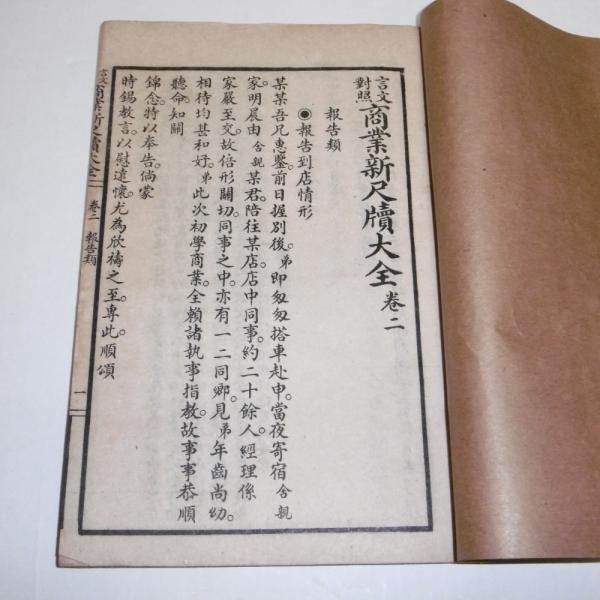 言文對照 商業新尺牘大全 卷二
報告類
◉報告到店情形
某某吾兄惠鑒。前日握別後。弟即匆匆搭車赴申。當夜寄宿舍親
家。明晨由舍親某君。陪往某店。店中同事。約二十餘人。經理係
家嚴至交。故倍形關切。同事之中。亦有一二同鄉。見弟年齒尚幼。
相待均甚和好。弟此次初學商業。全賴諸執事指教。故事事恭順
聽命。知關
錦念。特以奉告。倘蒙
時錫教言。以慰遠懷。尤為欣禱之至。專此。順頌
言文 商業新尺牘大全 卷二 報告類 一